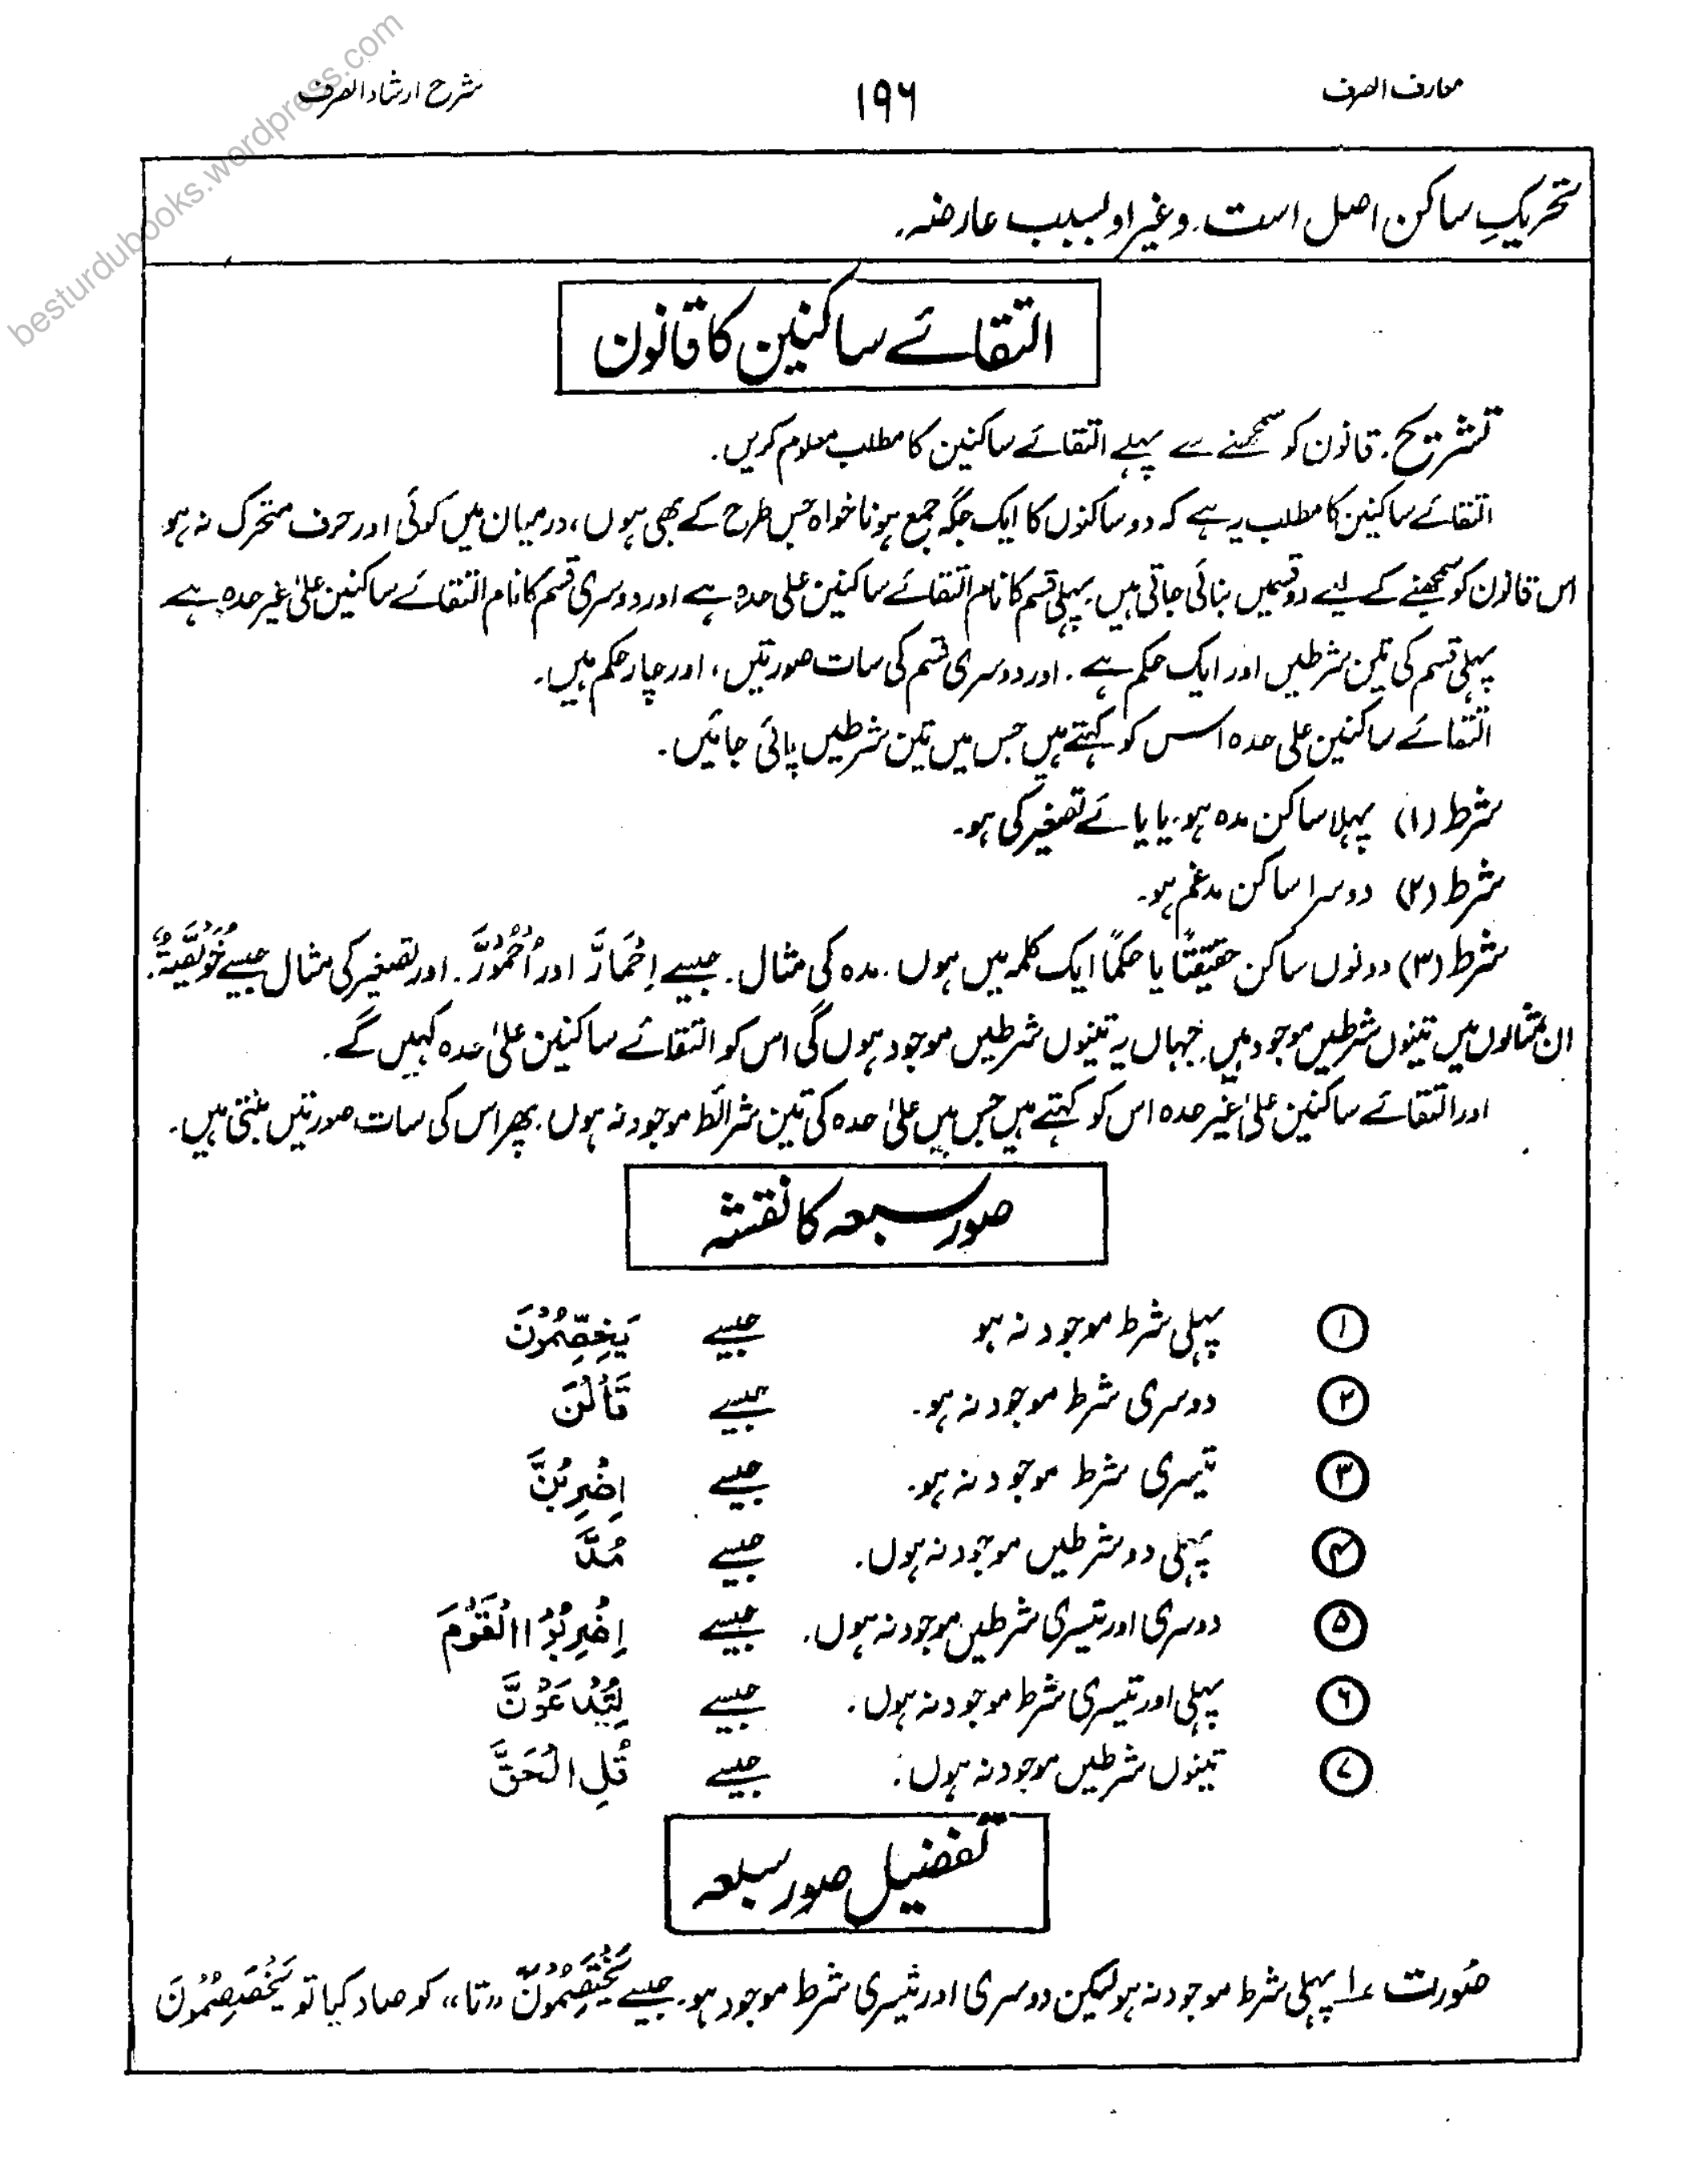 معارف الصرف ۱۹۶ شرح ارشاد الصرف
besturdubooks.wordpress.com
تحریکِ ساکن اصل است. وغیر او بسبب عارضہ.
التقائے ساکنین کا قانون
تشریح. قانون کو سمجھنے سے پہلے التقائے ساکنین کا مطلب معلوم کریں.
التقائے ساکنین کا مطلب یہ ہے کہ دو ساکنوں کا ایک جگہ جمع ہونا خواہ جس طرح کے بھی ہوں، درمیان میں کوئی اور حرف متحرک نہ ہو
اس قانون کو سمجھنے کے لیے دو قسمیں بنائی جاتی ہیں. پہلی قسم کا نام التقائے ساکنین علی حدہ ہے اور دوسری قسم کا نام التقائے ساکنین علیٰ غیر حدہ ہے
پہلی قسم کی تین شرطیں اور ایک حکم ہے. اور دوسری قسم کی سات صورتیں، اور چار حکم ہیں.
التقائے ساکنین علی حدہ اس کو کہتے ہیں جس میں تین شرطیں پائی جائیں.
شرط (۱) پہلا ساکن مدہ ہو. یا یائے تصغیر کی ہو.
شرط (۲) دوسرا ساکن مدغم ہو.
شرط (۳) دونوں ساکن حقیقتًا یا حکمًا ایک کلمہ میں ہوں. مدہ کی مثال. جیسے اِحْمَارَّ اور اُحْمُوْرَّ. اور تصغیر کی مثال جیسے خُوَیْصَّۃٌ.
ان مثالوں میں تینوں شرطیں موجود ہیں. جہاں یہ تینوں شرطیں موجود ہوں گی اس کو التقائے ساکنین علیٰ حدہ کہیں گے.
اور التقائے ساکنین علیٰ غیر حدہ اس کو کہتے ہیں جس میں علیٰ حدہ کی تین شرائط موجود نہ ہوں. پھر اس کی سات صورتیں بنتی ہیں.
صور سبعہ کا نقشہ
۱ پہلی شرط موجود نہ ہو جیسے یَخِصِّمُوْنَ
۲ دوسری شرط موجود نہ ہو. جیسے قَاْلْنَ
۳ تیسری شرط موجود نہ ہو. جیسے اِضْرِبُنَّ
۴ پہلی دو شرطیں موجود نہ ہوں. جیسے مُدَّ
۵ دوسری اور تیسری شرطیں موجود نہ ہوں. جیسے اِضْرِبُوْا الْقَوْمَ
۶ پہلی اور تیسری شرط موجود نہ ہوں. جیسے لِتُدْعَوُنَّ
۷ تینوں شرطیں موجود نہ ہوں. جیسے قُلِ الْحَقَّ
تفصیل صور سبعہ
صورت ۱ پہلی شرط موجود نہ ہو لیکن دوسری اور تیسری شرط موجود ہو. جیسے یَخْتَصِمُوْنَ «تا» کو صاد کیا تو یَخْصَصِمُوْنَ